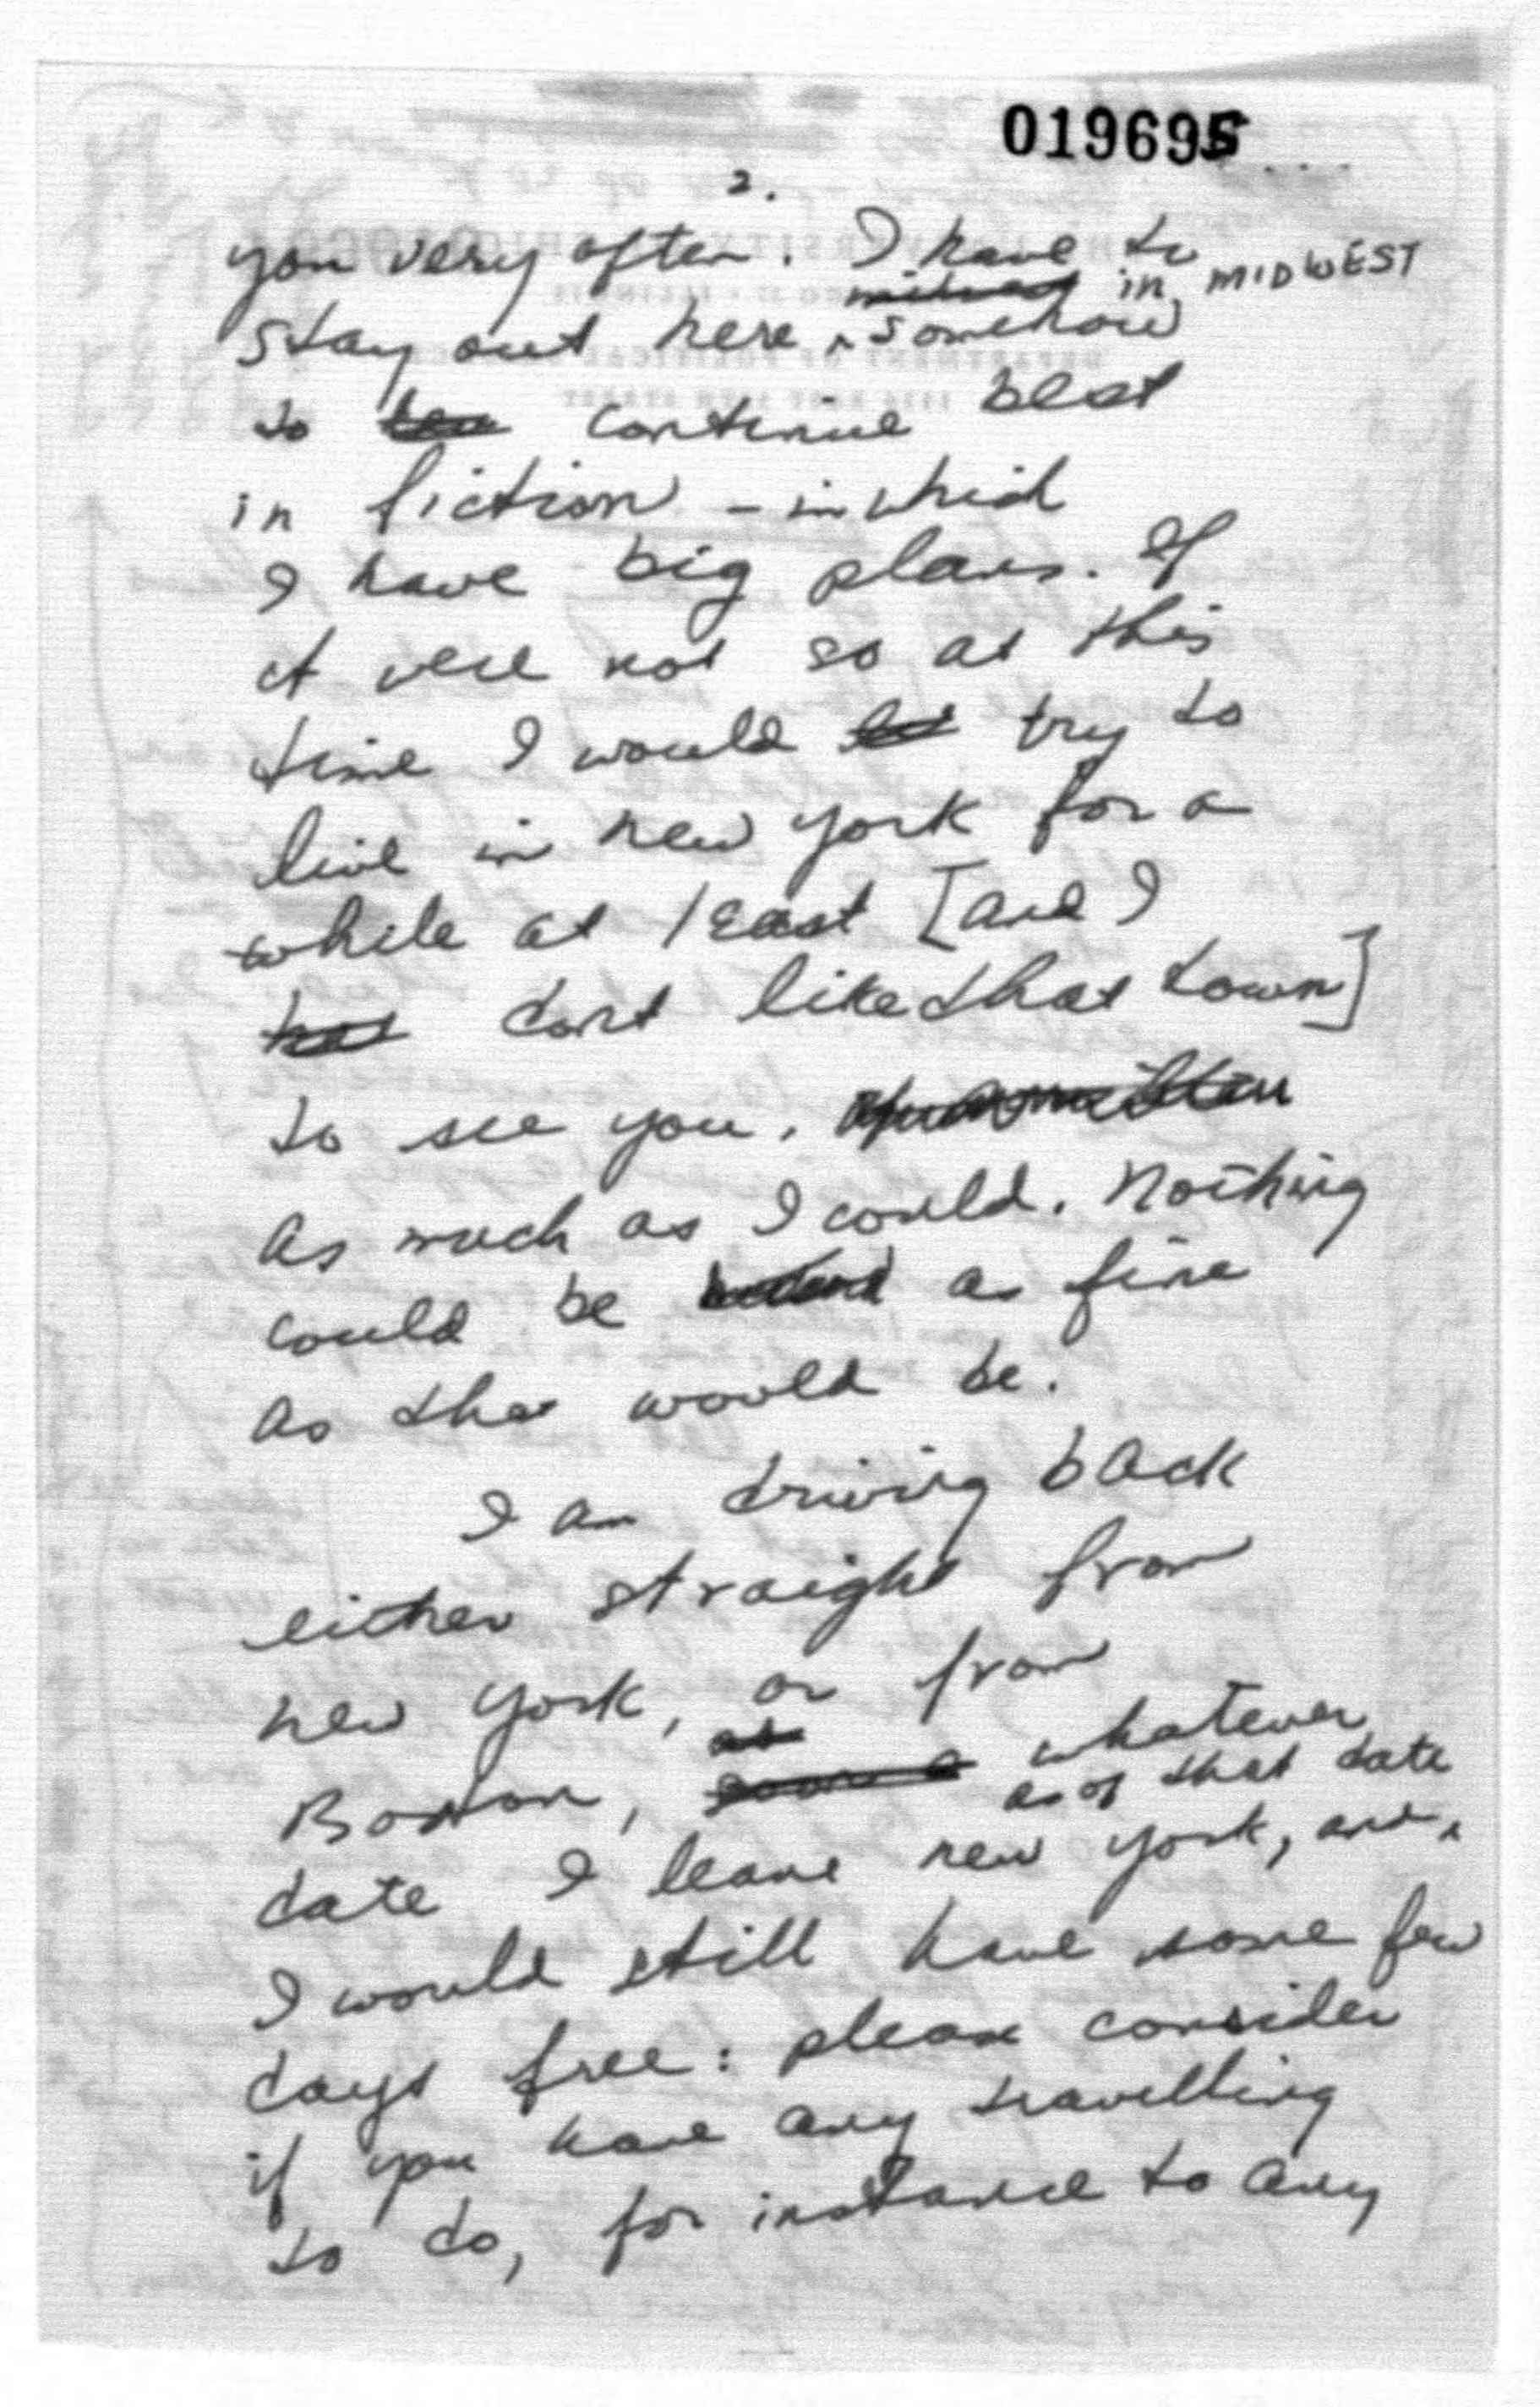 019695
2.
you very often. I have to
in MIDWEST
stay out here somehow
to continue best
in fiction - in which
I have big plans. If
it were not so at this
time I would try to
live in new york for a
while at least [and I
dont like that town]
to see you.
as much as I could. Nothing
could be as fine
as that would be.
I am driving back
either straight from
new york, or from
Boston, whatever
as of that date
date I leave new york, and
I would still have some few
days free: please consider
if you have any travelling
to do, for instance to any